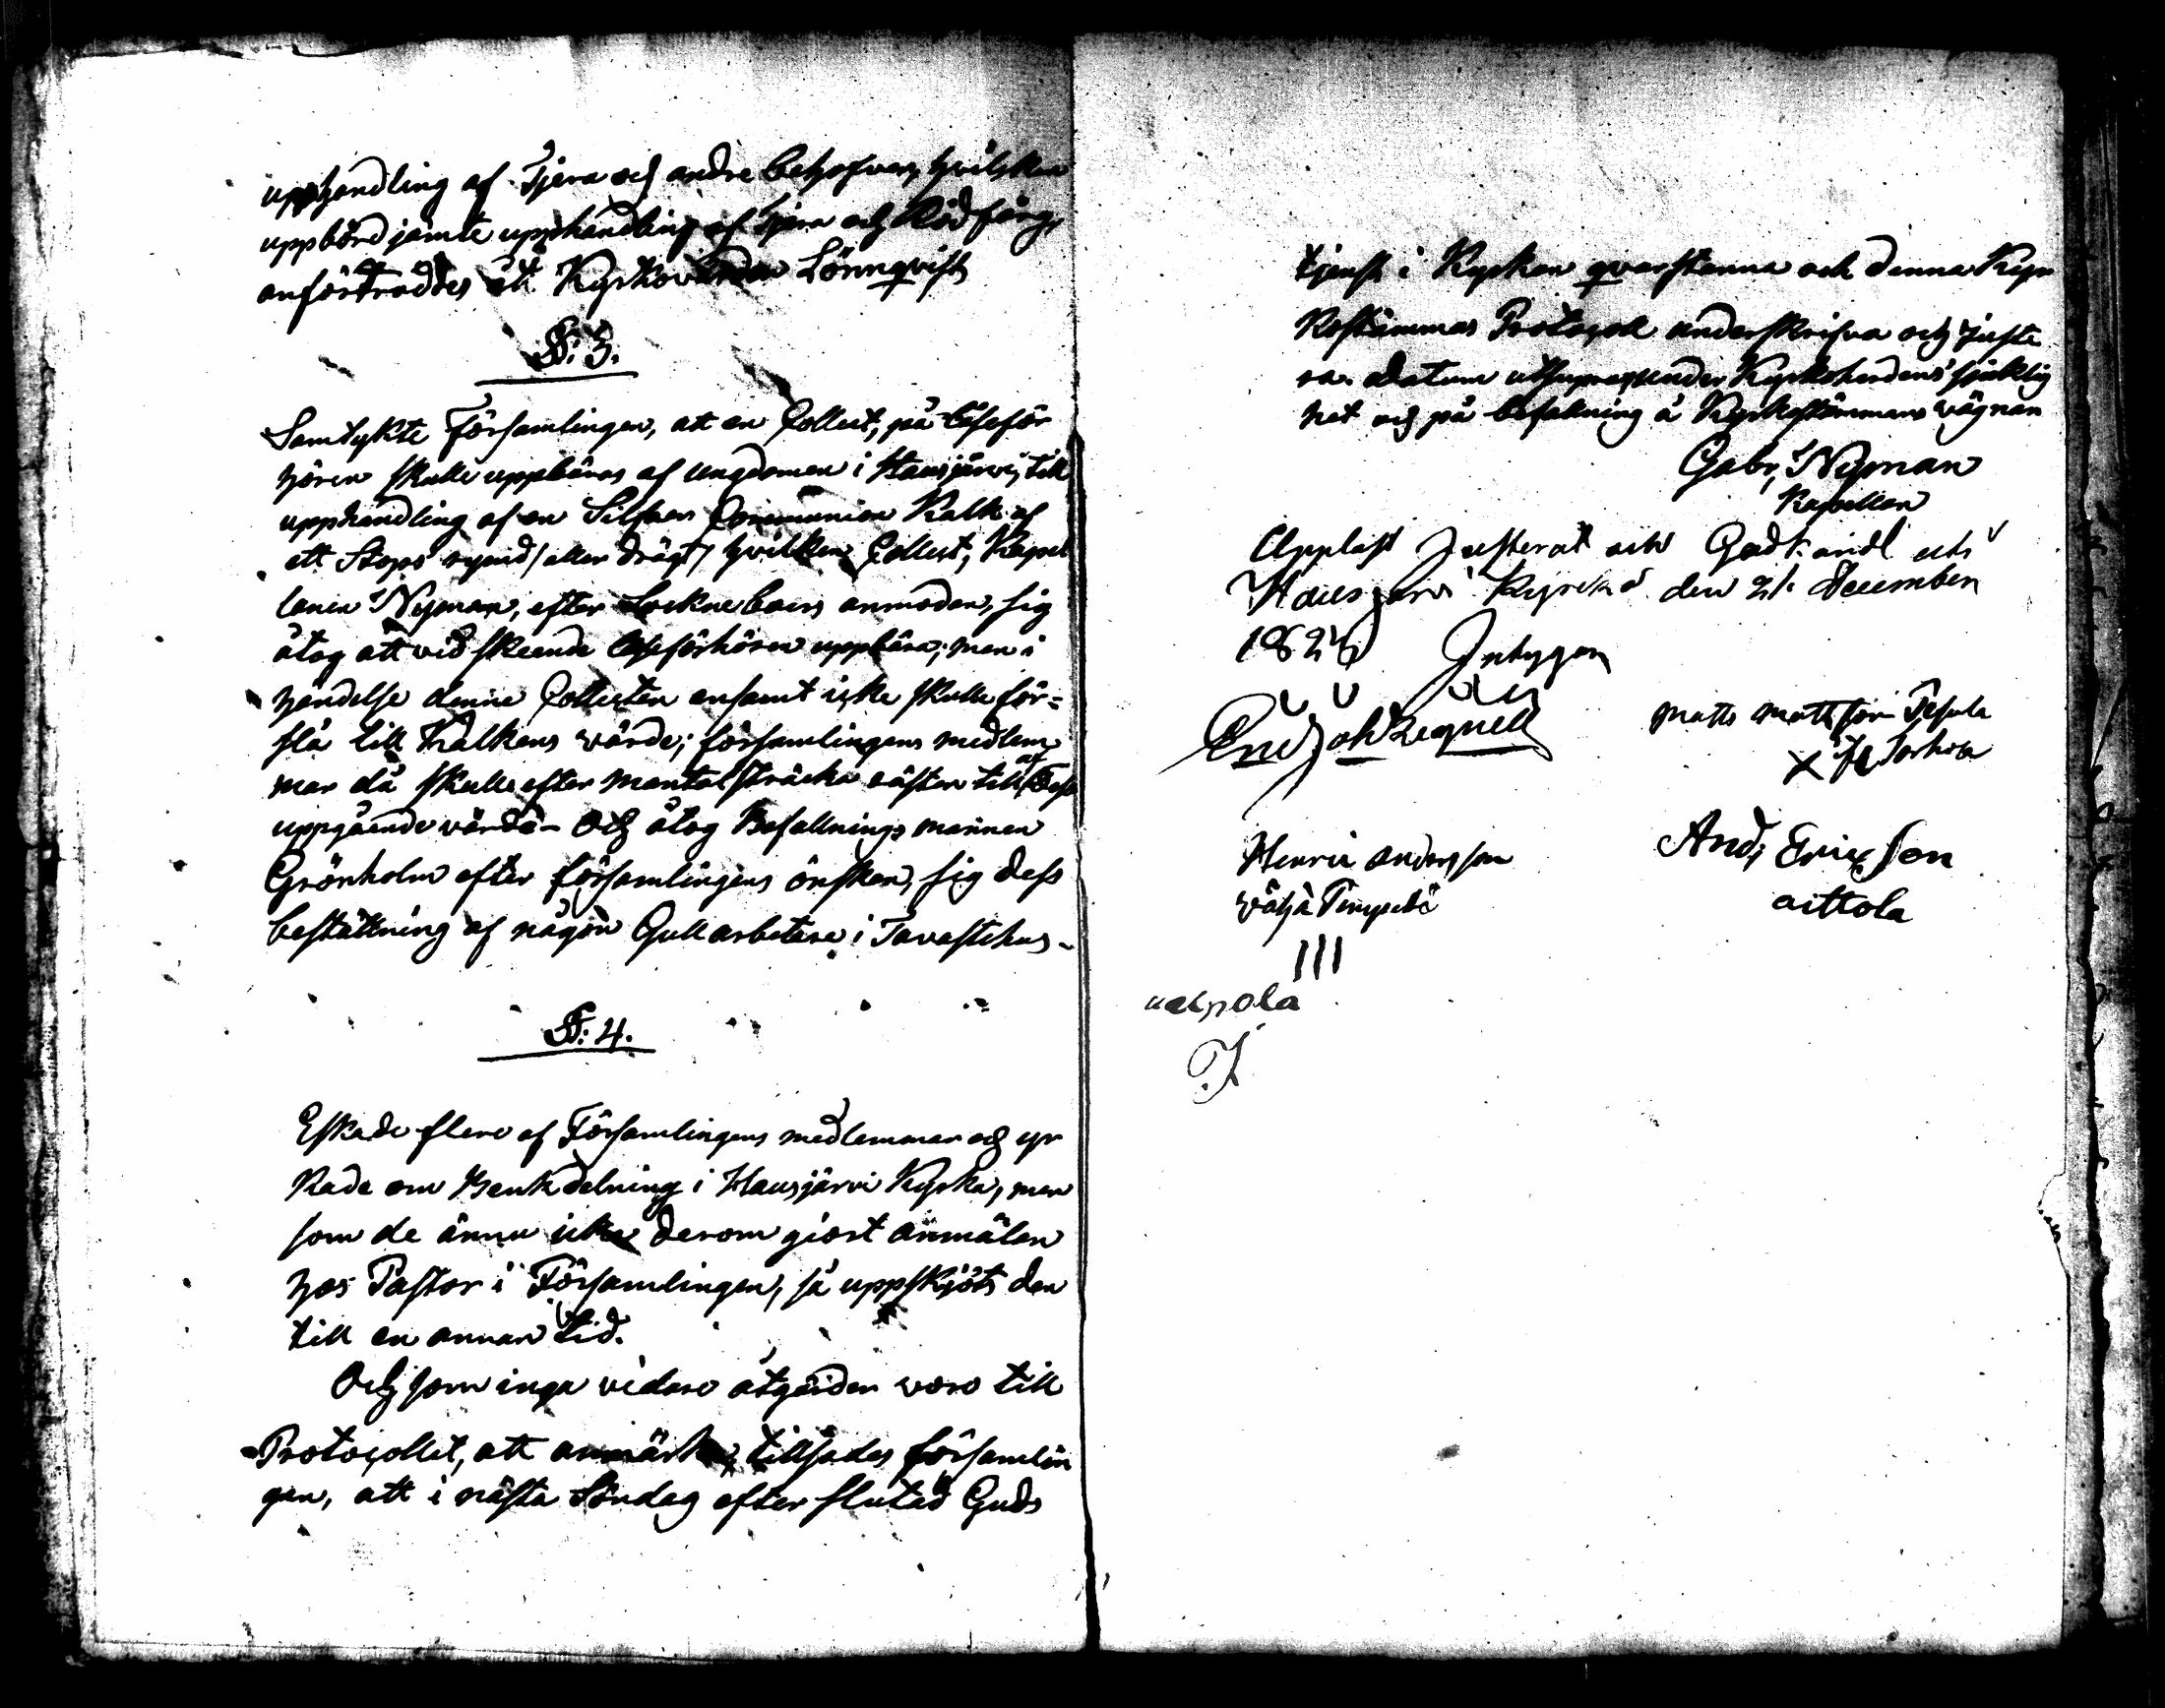 upphandling af Tjera och andre behofver, hvilken
uppbörd jämte upphandling af Tjera och Rödfärg,
anförtroddes åt Kyrkovärden Lönnqvist
§: 3.
Samtykte Församlingen, att en Collect, på läseför
hören skulle uppbäras af ungdomen i Hausjärvi, till
upphandling af en Silfver Communion Kalk af
ett Stops rymd /eller drägt/ hvilken Collect, Kapel
lanen Nyman, efter Sockneboers anmodan, sig
åtog att vid skeende läseförhören uppbära; men i
händelse denne Collecten ensamt icke skulle för=
slå till Kalkens värde; församlingens medlem
mar då skulle efter Mantal sträcka till dess
uppgående värde – Och åtog Befallningsmannen
Grönholm efter församlingens önskan, sig dess
beställning af någon Gullarbetare i Tavastehus –
§: 4.
Eskade flere af Församlingens medlemmar och yr
kade om Benkdelning i Hausjärvi Kyrka, men
som de ännu icke derom giort anmälan
hos Pastor i Församlingen, så uppskjöts den
till en annan tid.
Och som inga vidare åtgärder voro till
Protocollet, att anmärka, tillsades församlin
gen, att i nästa Söndag efter slutad Guds
tjenst i Kyrkan qvarstanna och denna Kyr
kostämmas Protocoll underskrifva och juste
ra. Datum utsupra, under Kyrkoherdens sjuklig
het och på befallning å Kyrkostämmans vägnar
Gabr, Nyman
Kapellan
Uppläst Justerat och Godkändt uti
Hausjärvi Kyrka den 21 December
Intygar
Matts Mattsson
X
Henric Andersson
And, Ericsson
aittola
III